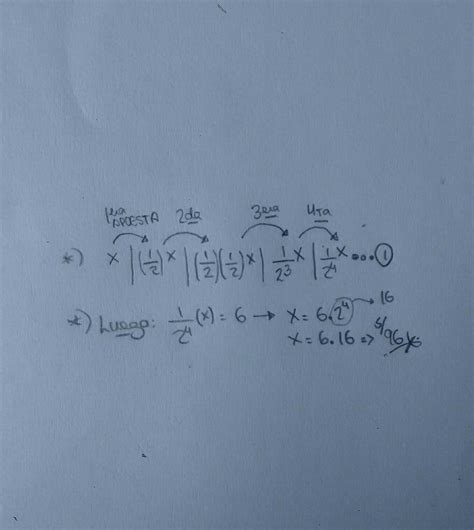 1era APUESTA 2da 3era 4ta
*) x | (1/2)x | (1/2)(1/2)x | 1/2³ x | 1/2⁴ x ... ①
*) Luego: 1/2⁴ (x) = 6 → x = 6.2⁴ → 16
x = 6.16 => s/96